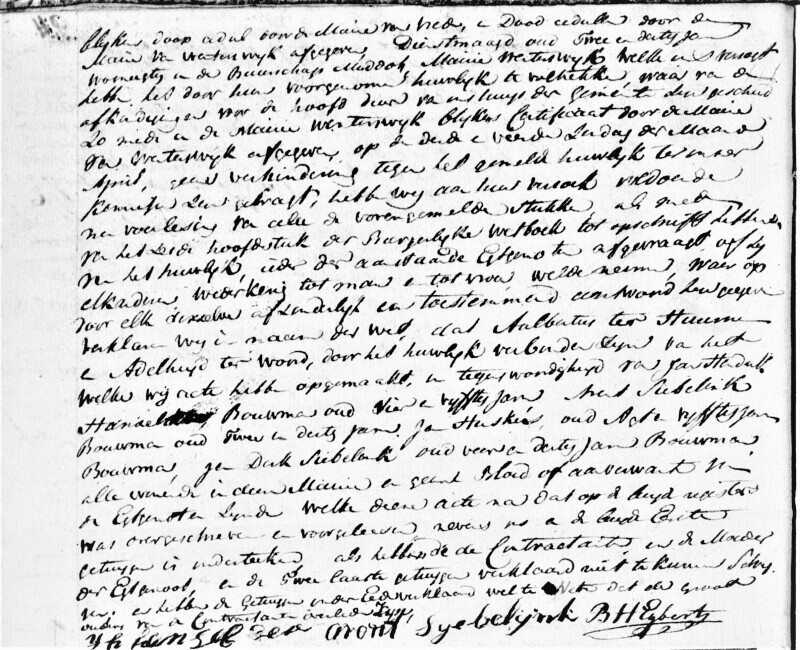 blyken doop actul door de Maire van Vreden e Dood cedulle door den
Maire van Wenterswyk afgegeven, Dienstmaagd oud Twee en dertig Jaar
woonagtig in de Buurschap Middok Mairie Wenterswyk welke ons versogt
hebbe het door hun voorgenomen huwelyk te voltrekke, waar van de
afkondigingen voor de hoofd deur van ons huys der gemeente Zyn geschied
Zo mede in de Mairie Wenterswyk blykens Certificaat door de Maire
van Wenterswyk afgegeven op den derde e vierde Zondag der Maand
April, geene verhindering tegen het gemelde huwelyk ter onser
Kennisse Zyn gebragt, hebbe wy aan hun versoek voldoende
na voorlesing van alle de vorengemelde stukke als mede
van het Zesde hoofdstuk der Burgerlyke Wetboek tot opschrift hebbende
van het huwelyk, ieder der aanstaande Egtgenoten afgevraagt of Zy
elkandere wederkerig tot man e tot vrou wilde neemen, waar op
door elk deselve afzonderlyk en toestemmend antwoord Zyn gegeven
verklaren wy in naam der Wet, dat Aalbertus ter Huurne
e Adelheid ter Woord, door het huwelyk verbonden Zyn van het
welke wy acte hebbe opgemaakt, in tegenswoordigheid van Jan Hendrik
Bouwman oud Vier e vyftig Jaar Arent Siebelink
Bouwman oud Twee en dertig Jaar, Jan Huskes, oud Agt e vyftig Jaar
Bouwman, Jan Derk Siebelink oud veer en dertig Jaar Bouwman
alle wonende in deese Mairie en geene Bloed of aanverwant van
de Egtgenoten Zynde Welke deese acte na dat op de beyde registers
was overgeschreven en voorgeleesen nevens ons e de beyde Eerste
getuygen is ondertekend, als hebbende de Contractante en de Moeder
der Egtgenoot, en de Twee laaste getuygen verklaard niet te kunnen Schry
ven, en hebbe de getuygen onder Eed verklaard wel te weten dat de groot
ouders van de Contractante overleden Zyn,
arent Syebelynk B H Egberts